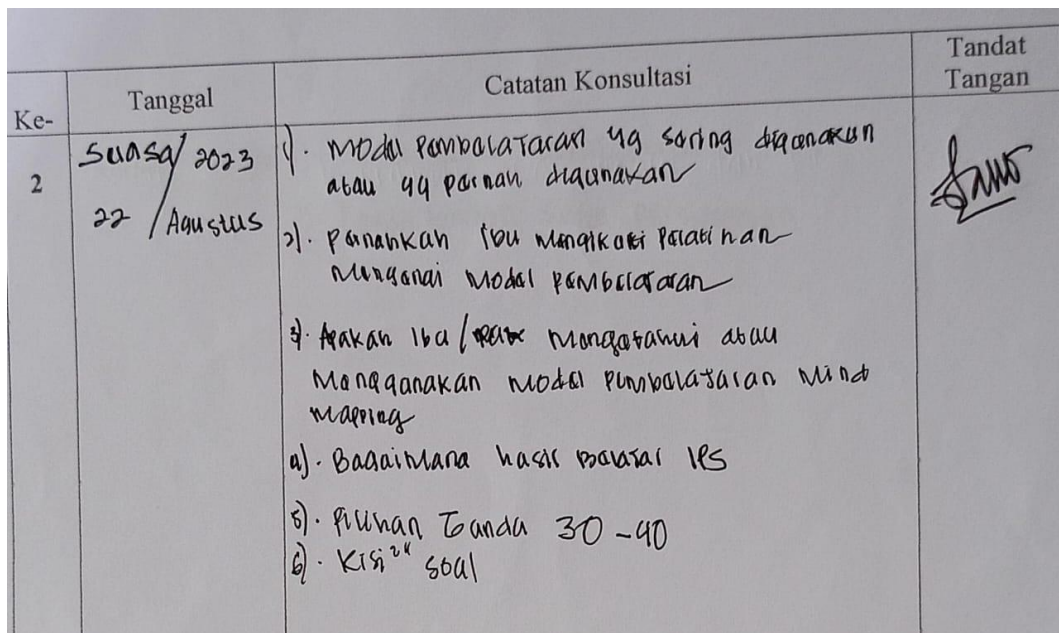 Ke-
Tanggal
Catatan Konsultasi
Tandat
Tangan
2
Selasa/ 2023
22 /Agustus
1). Model Pembelajaran yg sering digunakan
atau yg pernah digunakan
2). Pernahkah ibu mengikuti pelatihan
mengenai model pembelajaran
3). Apakah Ibu/ mengetahui atau
menggunakan model pembelajaran Mind
mapping
4). Bagaimana hasil belajar IPS
5). Pilihan Ganda 30-40
6). Kisi" soal